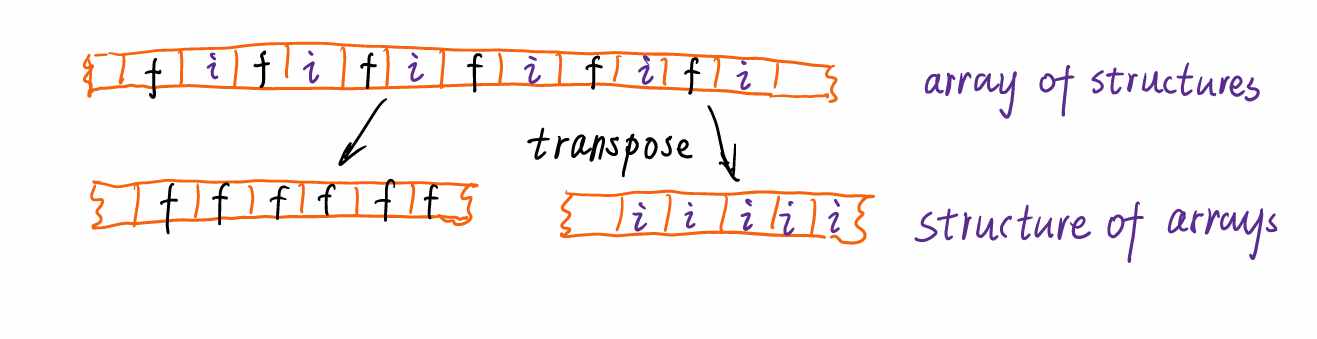 f i f i f i f i f i f i array of structures
transpose
f f f f f f i i i i i structure of arrays